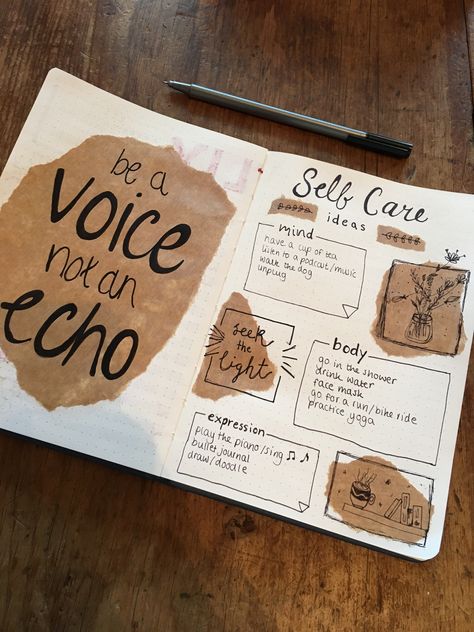 be a
voice
not an
echo
Self Care
ideas
mind
have a cup of tea
listen to a podcast/music
walk the dog
unplug
seek
the
light
body
go in the shower
drink water
face mask
go for a run/bike ride
practice yoga
expression
play the piano/sing
bullet journal
draw/doodle